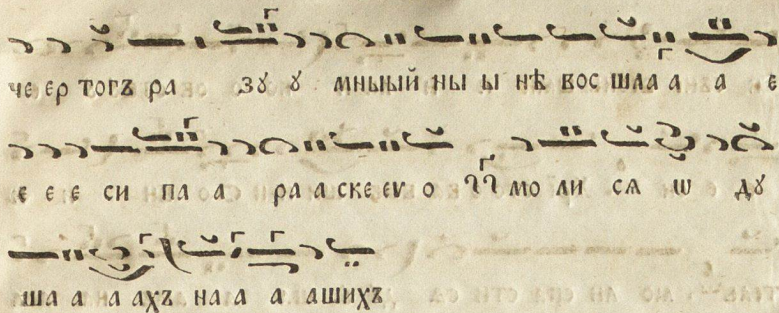 че ер тогъ ра зꙋ ꙋ мныый ны ы нѣ вос шла а а е
е е е си па а ра а ске еѵ о мо ли ся ѿ дꙋ
ша а а ахъ на а а ашихъ